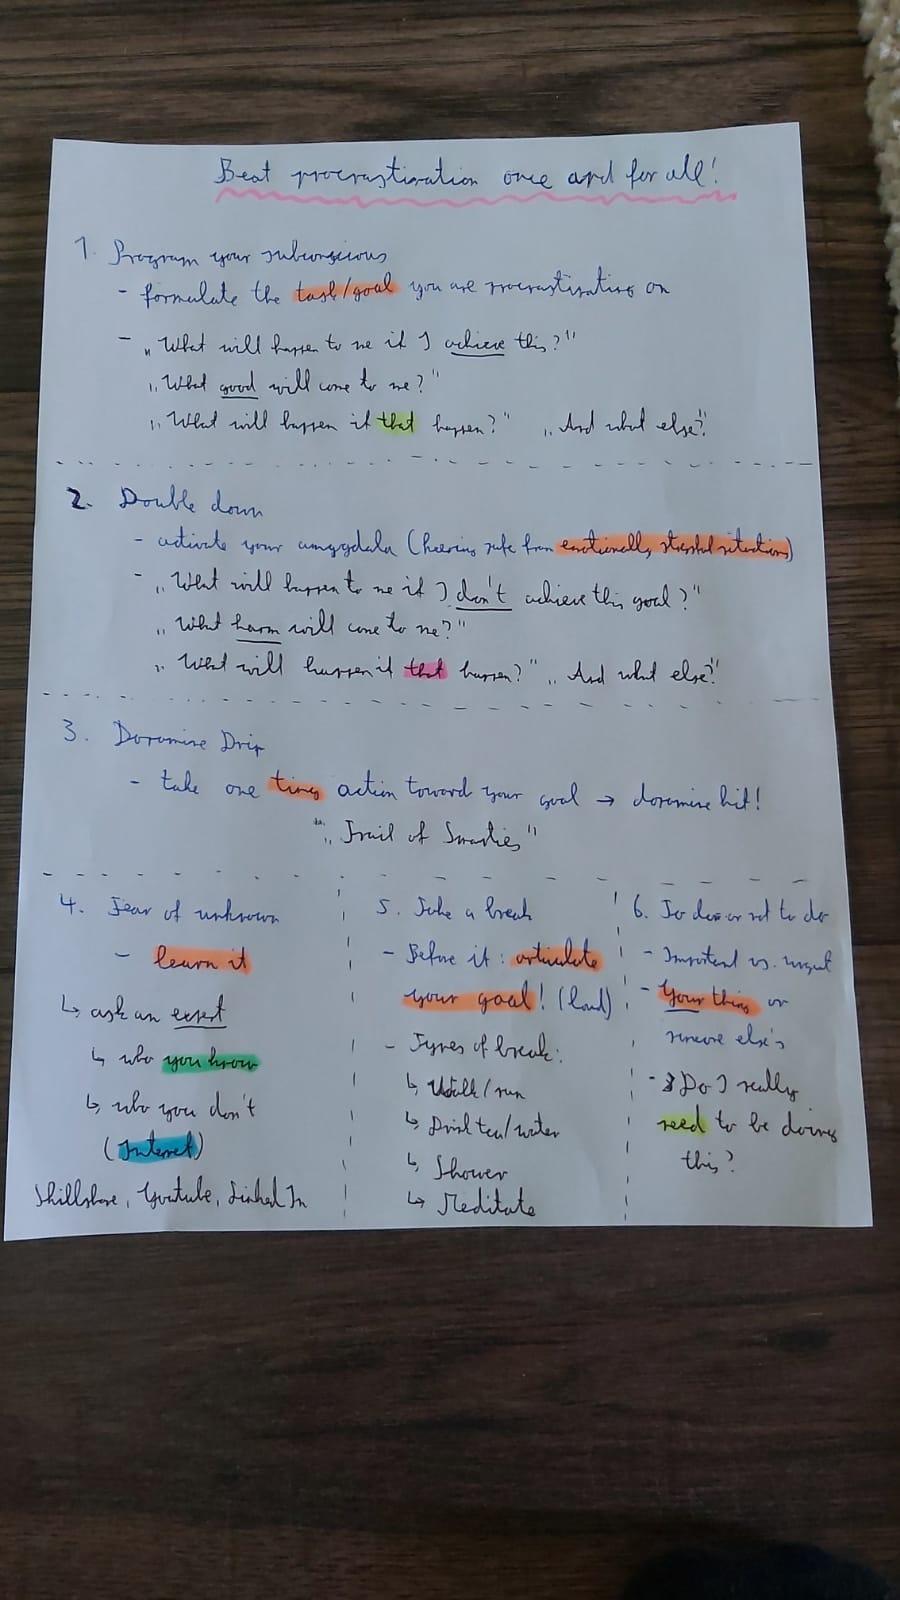 Beat procrastination once and for all!
1. Program your subconscious
- formulate the task/goal you are procrastinating on
- „What will happen to me if I achieve this?"
„What good will come to me?"
„What will happen if that happen?" „And what else?"
2. Double down
- activate your amygdala (keeping safe from emotionally stressful situations)
- „What will happen to me if I don't achieve this goal?"
„What harm will come to me?"
„What will happen if that happen?" „And what else?"
3. Dopamine Drip
- take one tiny action toward your goal → dopamine hit!
„Trail of Smarties"
4. Fear of unknown
- learn it
↳ ask an expert
↳ who you know
↳ who you don't
(Internet)
Skillshare, Youtube, LinkedIn
5. Take a break
- Before it: articulate
your goal! (loud)
- Types of break:
↳ Walk/run
↳ Drink tea/water
↳ Shower
↳ Meditate
6. To do or not to do
- Important vs. urgent
- Your thing or
someone else's
- Do I really
need to be doing
this?